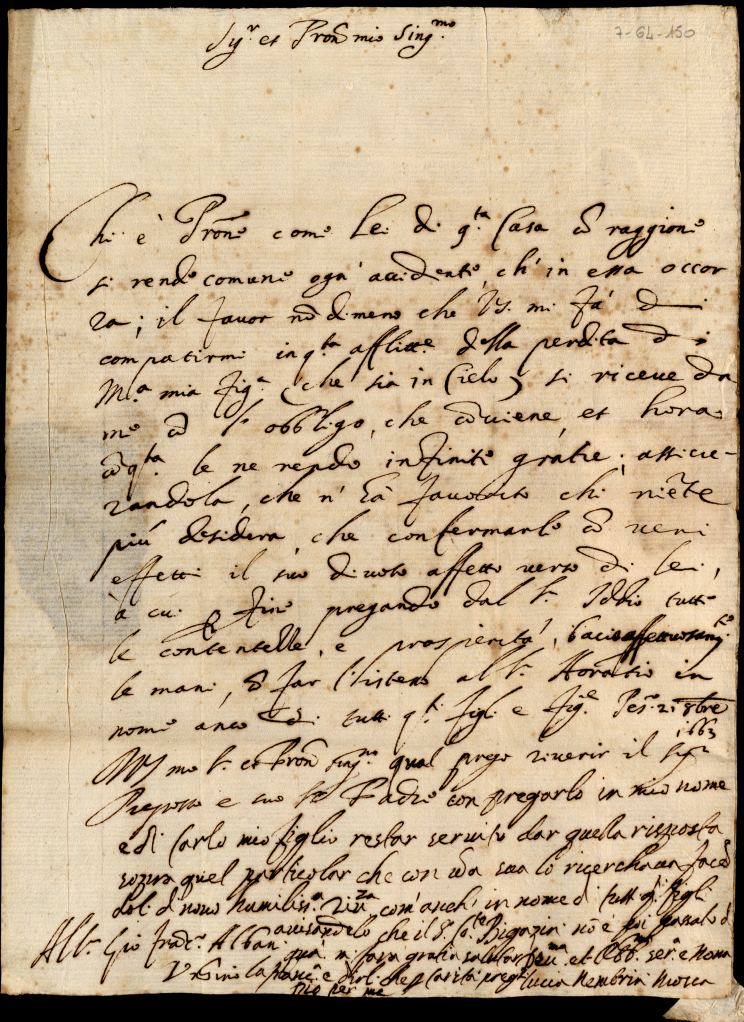 7-64-150
Sig.r et Pron mio Sing.mo
Chi è Prone come Lei di q.ta Casa cō raggione
si rende comune ogn' accidente, ch' in essa occor
ra; il favor nō dimeno che VS. mi fà di
compatirmi in q.ta afflitt.e della perdita di
M.a mia fig.a (che sia in Cielo) si riceve da
me cō l' obbligo, che cōviene, et hora
cō q.ta le ne rendo infinite gratie; assicu-
randola, che n' hà favorito chi niēte
più desidera, che confermarle cō veri
effetti il suo divoto affetto verso di lei,
à cui p fine pregando dal S.r Iddio tutte
le contentezze, e prosperità, bacio affettuosam.te
le mani, e far l'istesso al S.r Horatio in
nome anco di tutti q.ti figli e fig.e Pes.o 21 8bre
1663
mo S.r et Pron sing.mo qual prego riverir il Sig.r
Preposto e suo S.r Padre con pregarlo in mio nome
e di Carlo mio figlio restar servito dar quella risposta
sopra quel particolar che con la sua lo ricerchava
com'anchi in nome di tutti q.ti figli
avisandolo che il S.r nō è poi passato di
quà mi farà gratia salutar
All S.r Gio Franc.o Alban
Lucia Mosca
per me